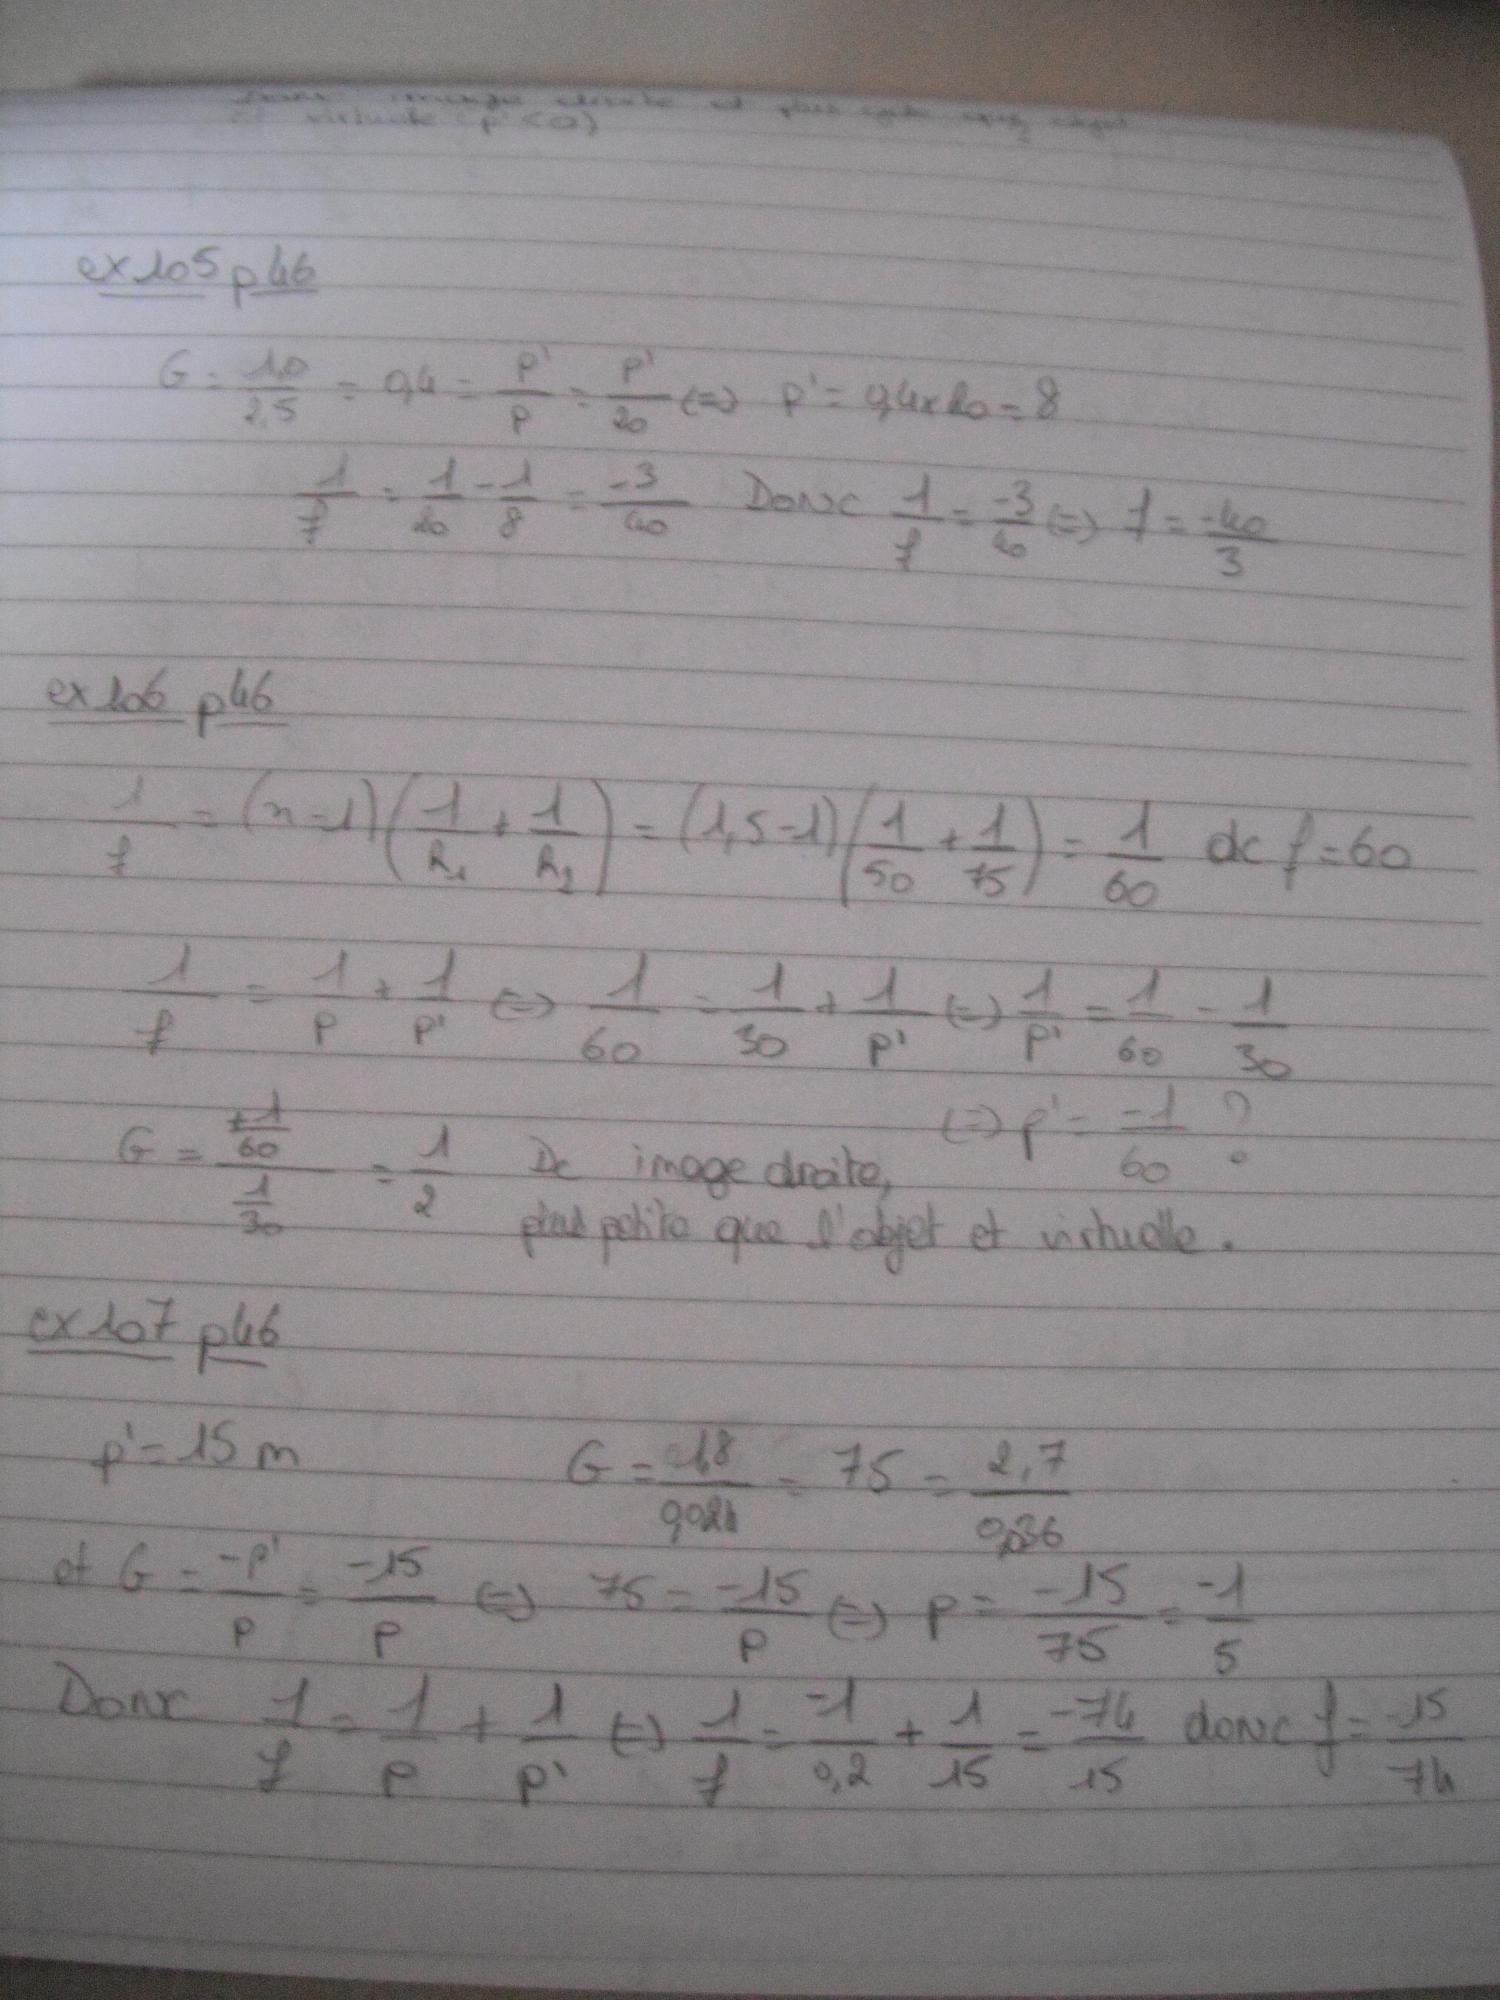 image droite et plus
et virtuelle (p' < 0)
ex 105 p46
G = 1,0/2,5 = 0,4 = p'/p = p'/20 (=) p' = 0,4 x 20 = 8
1/f = 1/20 - 1/8 = -3/40 Donc 1/f = -3/40 (=) f = -40/3
ex 106 p46
1/f = (n-1)(1/R₁ + 1/R₂) = (1,5-1)(1/50 + 1/75) = 1/60 dc f = 60
1/f = 1/p + 1/p' (=) 1/60 = 1/30 + 1/p' (=) 1/p' = 1/60 - 1/30
(=) p' = -1/60 ?
G = (+1/60)/(1/30) = 1/2 Dc image droite,
plus petite que l'objet et virtuelle.
ex 107 p46
p' = 15 m G = 1,8/0,024 = 75 = 2,7/0,036
et G = -p'/p = -15/p (=) 75 = -15/p (=) p = -15/75 = -1/5
Donc 1/f = 1/p + 1/p' (=) 1/f = -1/0,2 + 1/15 = -74/15 donc f = -15/74